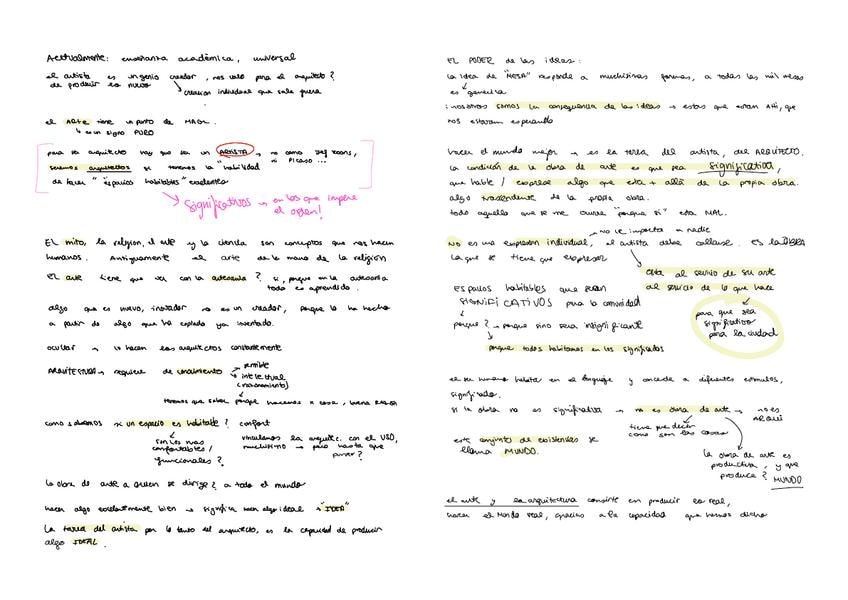 Actualmente: enseñanza académica, universal
el artista es un genio creador, nos vale para el arquitecto?
de producir lo nuevo
creación individual que sale fuera
el ARTE tiene un punto de MAGIA.
es un signo PURO
para ser arquitecto hay que ser un ARTISTA → no como Jeff Koons,
ni Picasso...
seremos arquitectos si tenemos la "habilidad
de hacer" "espacios habitables" excelentes
significativos → en los que impere
el orden!
El mito, la religión, el arte y la ciencia son conceptos que nos hacen
humanos. Antiguamente el arte de la mano de la religión
el arte tiene que ver con la artesanía? si, porque en la artesanía
todo es aprendido.
algo que es nuevo, inovador no es un creador, porque lo ha hecho
a partir de algo que ha copiado ya inventado.
ocultar → lo hacen los arquitectos constantemente
ARQUITECTURA → requiere de conocimiento
sensible
intelectual
(razonamiento)
tenemos que saber porque hacemos x cosa, buena RAZÓN
como sabemos si un espacio es habitable? confort
son los mas
confortables /
funcionales?
vinculamos la arquitec. con el USO,
muchísimo → pero hasta que
punto?
la obra de arte a quien se dirige? a todo el mundo
hacer algo excelentemente bien → significa hacer algo ideal → "IDEA"
la tarea del artista por lo tanto del arquitecto, es la capacidad de producir
algo IDEAL.
EL PODER de las ideas:
la idea de "MESA" responde a muchísimas formas, a todas las mil mesas
es genérica
nosotros somos la consecuencia de las ideas → estas que estan AHI, que
nos estaran esperando
hacer el mundo mejor → es la tarea del artista, del ARQUITECTO.
la condición de la obra de arte es que sea significativa,
que hable / exprese algo que esta + allá de la propia obra.
algo trascendente de la propia obra.
todo aquello que se me ocurre "porque si" esta MAL.
no le importa a nadie
NO es una expresión individual, el artista debe callarse. es la OBRA
la que se tiene que expresar
esta al servicio de su arte
al servicio de lo que hace
para que sea
significativo
para la ciudad
Espacios habitables que sean
SIGNIFICATIVOS para la comunidad
porque? → porque sino sera insignificante
porque todos habitamos en los significados
el ser humano habita en el lenguaje y concede a diferentes estímulos,
significados.
si la obra no es significativa → no es obra de arte → no es
ARQUI
tiene que decir
como son las cosas
este conjunto de existentes se
llama MUNDO.
la obra de arte es
productiva, y que
produce? MUNDO
el arte y la arquitectura consiste en producir lo real,
hacer el mundo real, gracias a la capacidad que hemos dicho